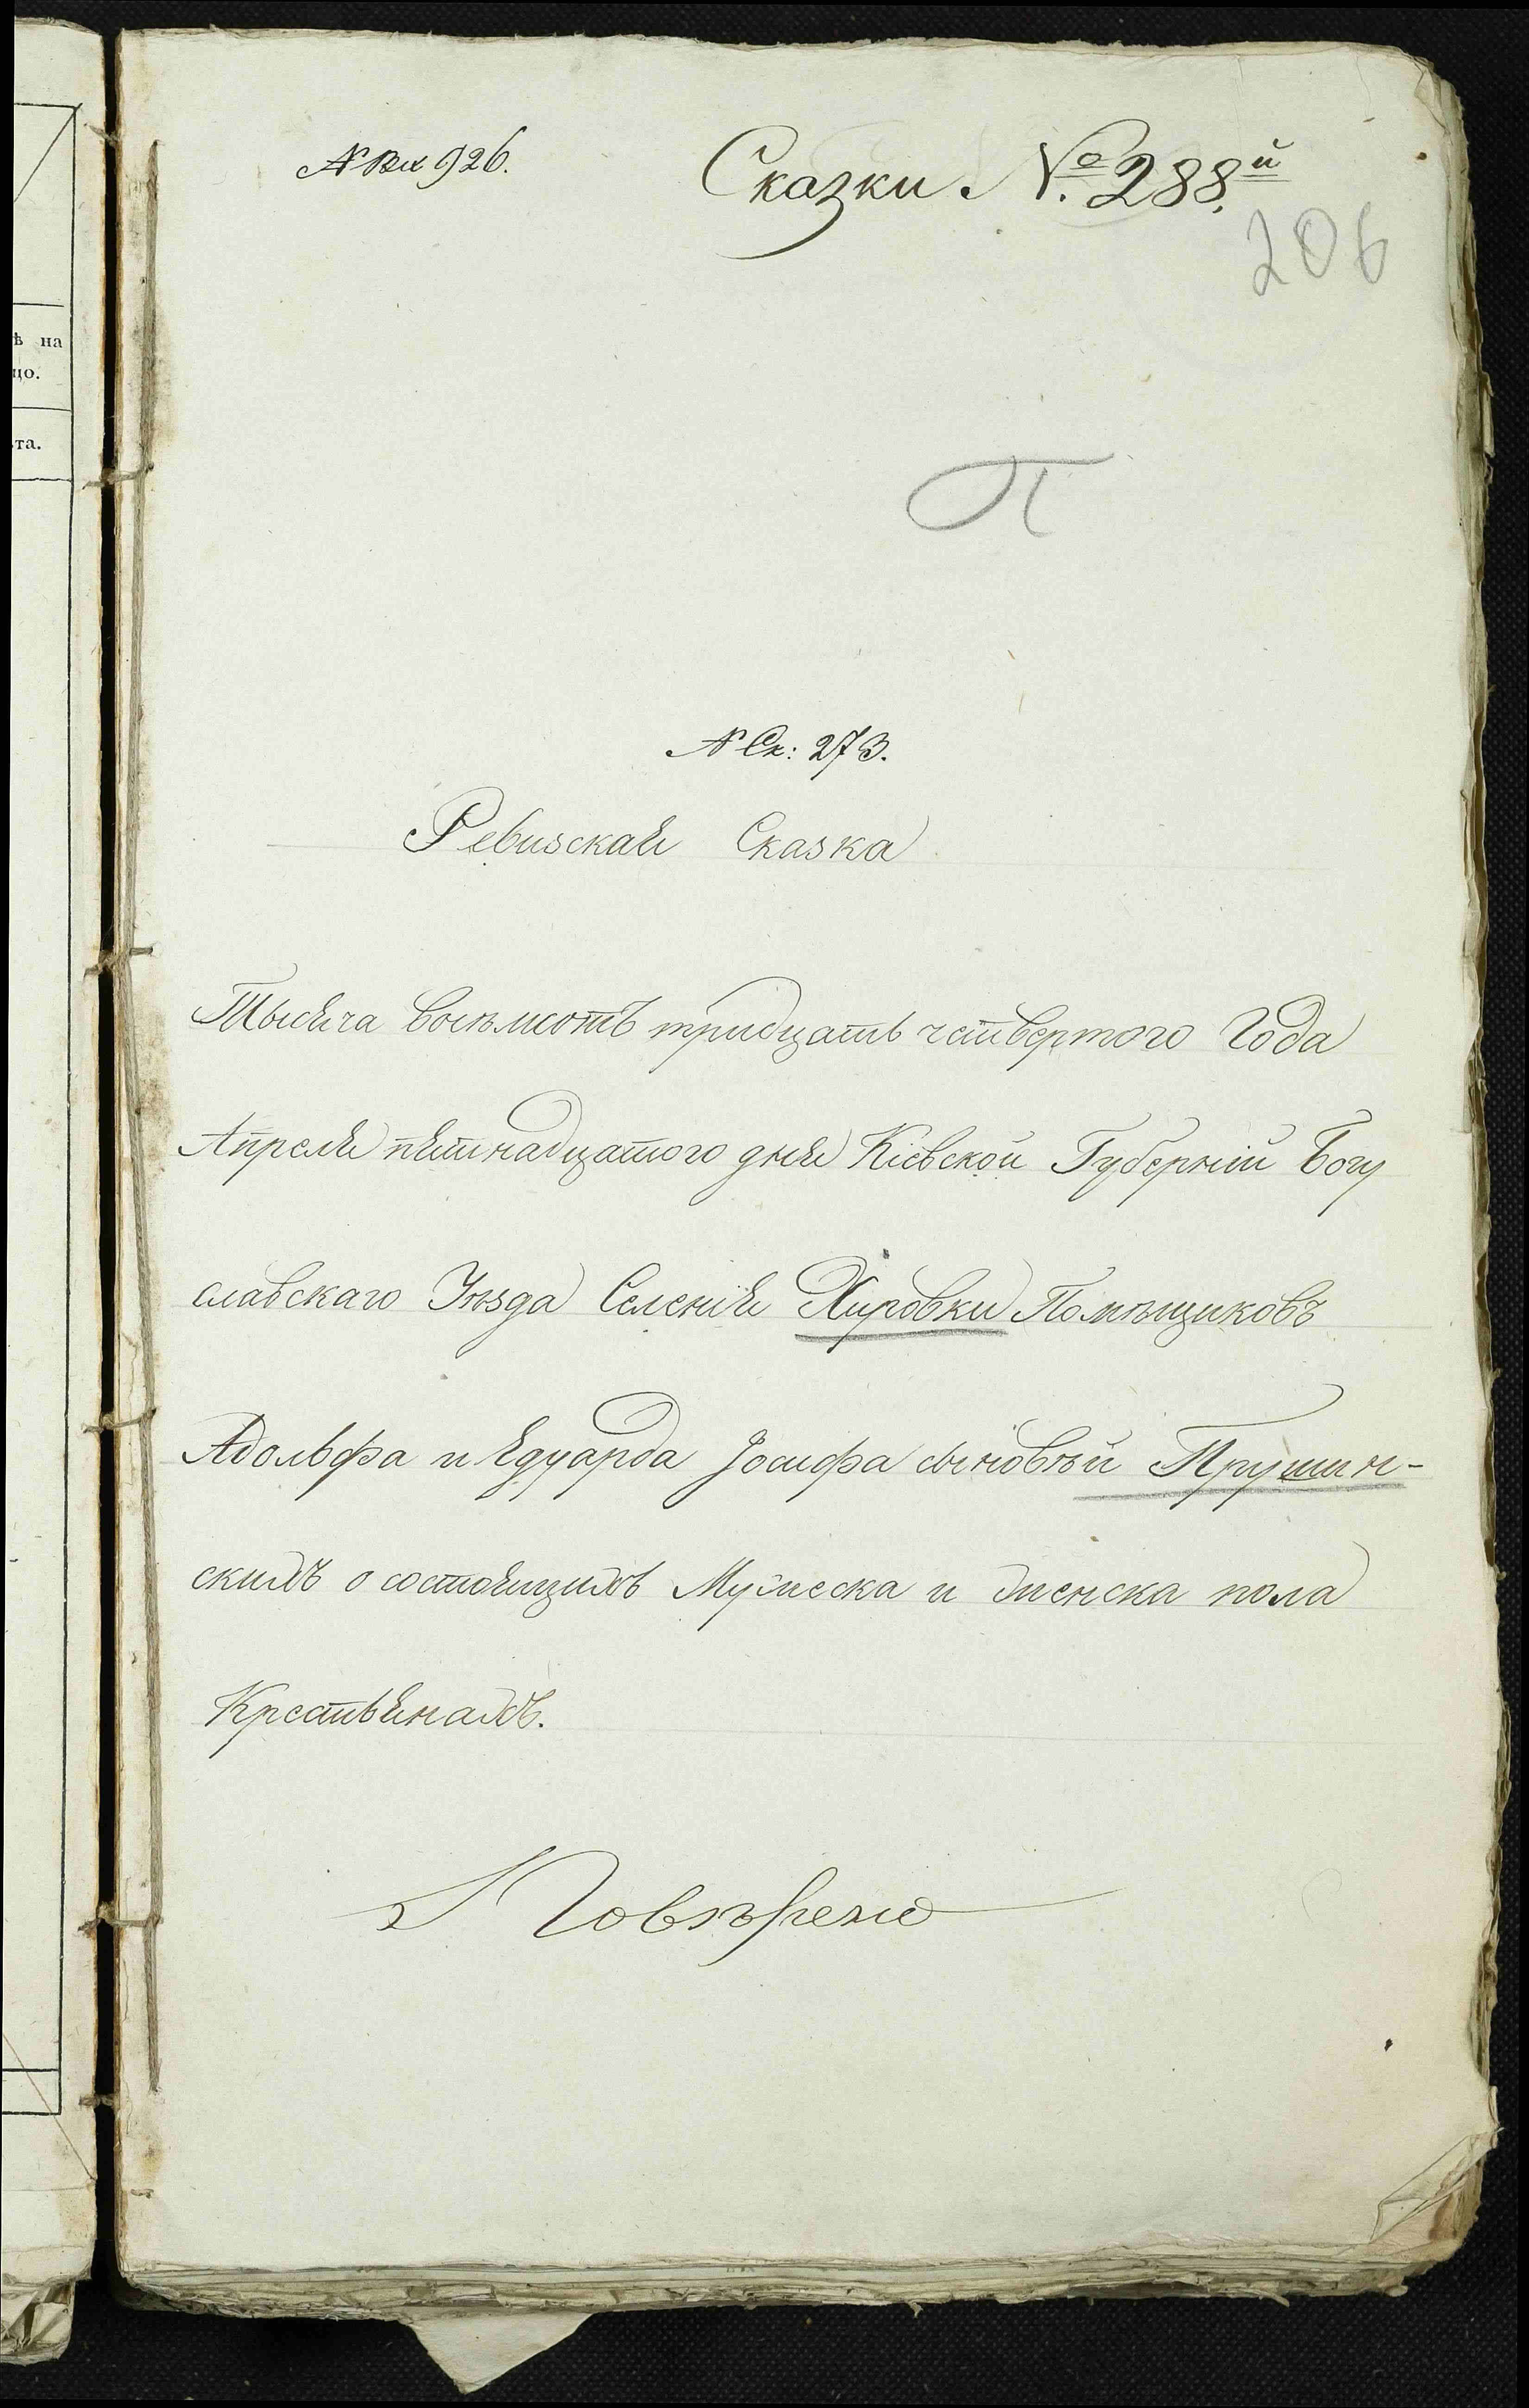 № Вх 926.
Сказки №. 288.й
206
П
№ Ск: 273.
Ревизская Сказка
Тысяча восѣмсотъ тридцать четвертого Года
Апреля пятнадцатого дня Кіевской Губерніи Богу
славскаго Уѣзда Селенія Хировки Помѣщиковъ
Адольфа и Едуарда Іосифа сыновѣй Прушин-
скихъ о состоящихъ Мужеска и женска пола
Крестьянахъ.
Повѣрено
ѣ на
цо.
та.